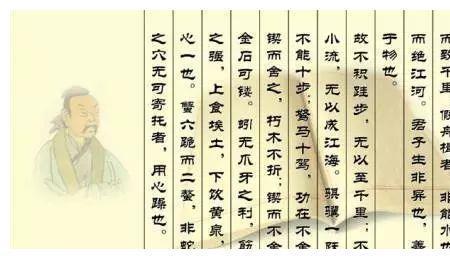 而致千里。假舟楫者，非能水也
而绝江河。君子生非异也，善
于物也。
故不积跬步，无以至千里；不
小流，无以成江海。骐骥一跃
不能十步；驽马十驾，功在不舍
锲而舍之，朽木不折；锲而不舍
金石可镂。蚓无爪牙之利，筋
之强，上食埃土，下饮黄泉，
心一也。蟹六跪而二螯，非蛇
之穴无可寄托者，用心躁也。